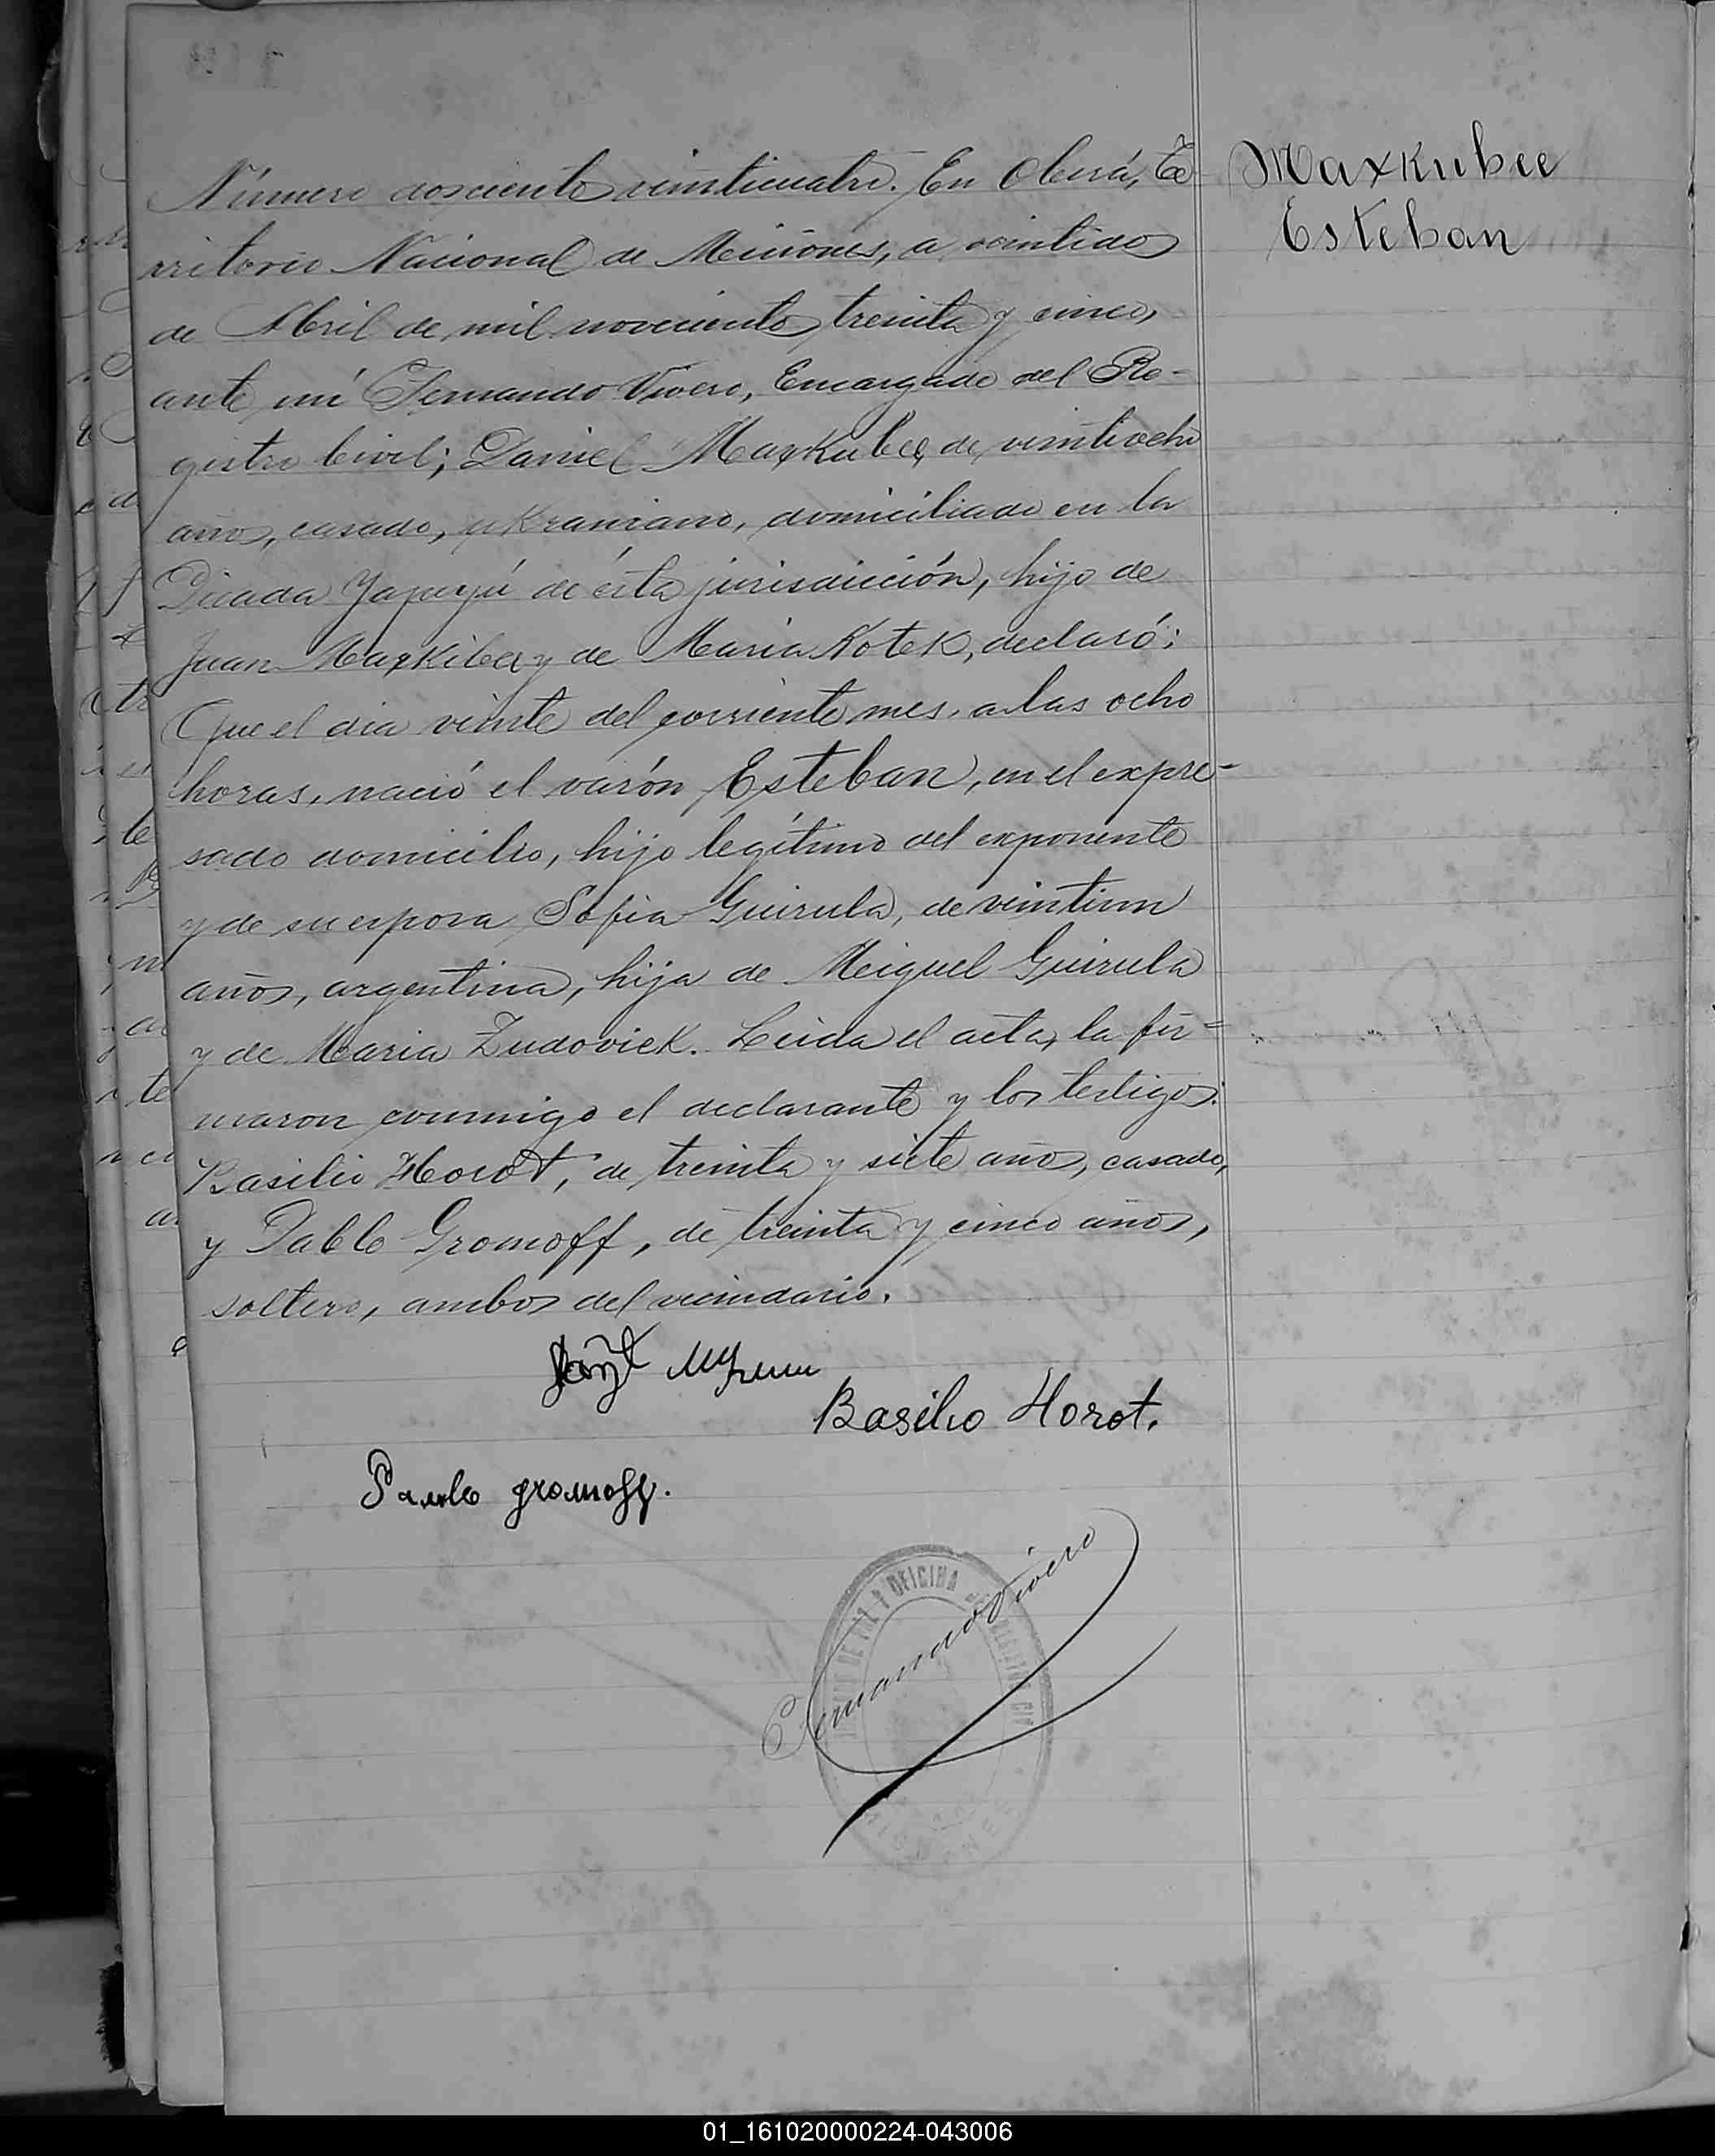 Número doscientos veinticuatro. En Oberá, Te
rritorio Nacional de Misiones, a veintidos
de Abril de mil novecientos treinta y cinco,
ante mí Fernando Vivero, Encargado del Re-
gistro Civil; Daniel Maxkubee, de veintiocho
años, casado, ukraniano, domiciliado en la
Picada Yapeyú de ésta jurisdicción, hijo de
Juan Maxkibee y de Maria Kotek, declaró:
Que el dia veinte del corriente mes, a las ocho
horas, nació el varón Esteban, en el expre-
sado domicilio, hijo legítimo del exponente
y de su esposa Sofia Guirula, de veintiun
años, argentina, hija de Miguel Guirula
y de Maria Zudovick. Leida el acta, la fir=
maron conmigo el declarante y los testigos:
Basilio Horot, de treinta y siete años, casado,
y Pablo Gromoff, de treinta y cinco años,
soltero, ambos del vecindario.
Basilio Horot.
Pablo gromoff.
Fernando Vivero
OFICINA
Maxkubee
Esteban
01_161020000224-043006